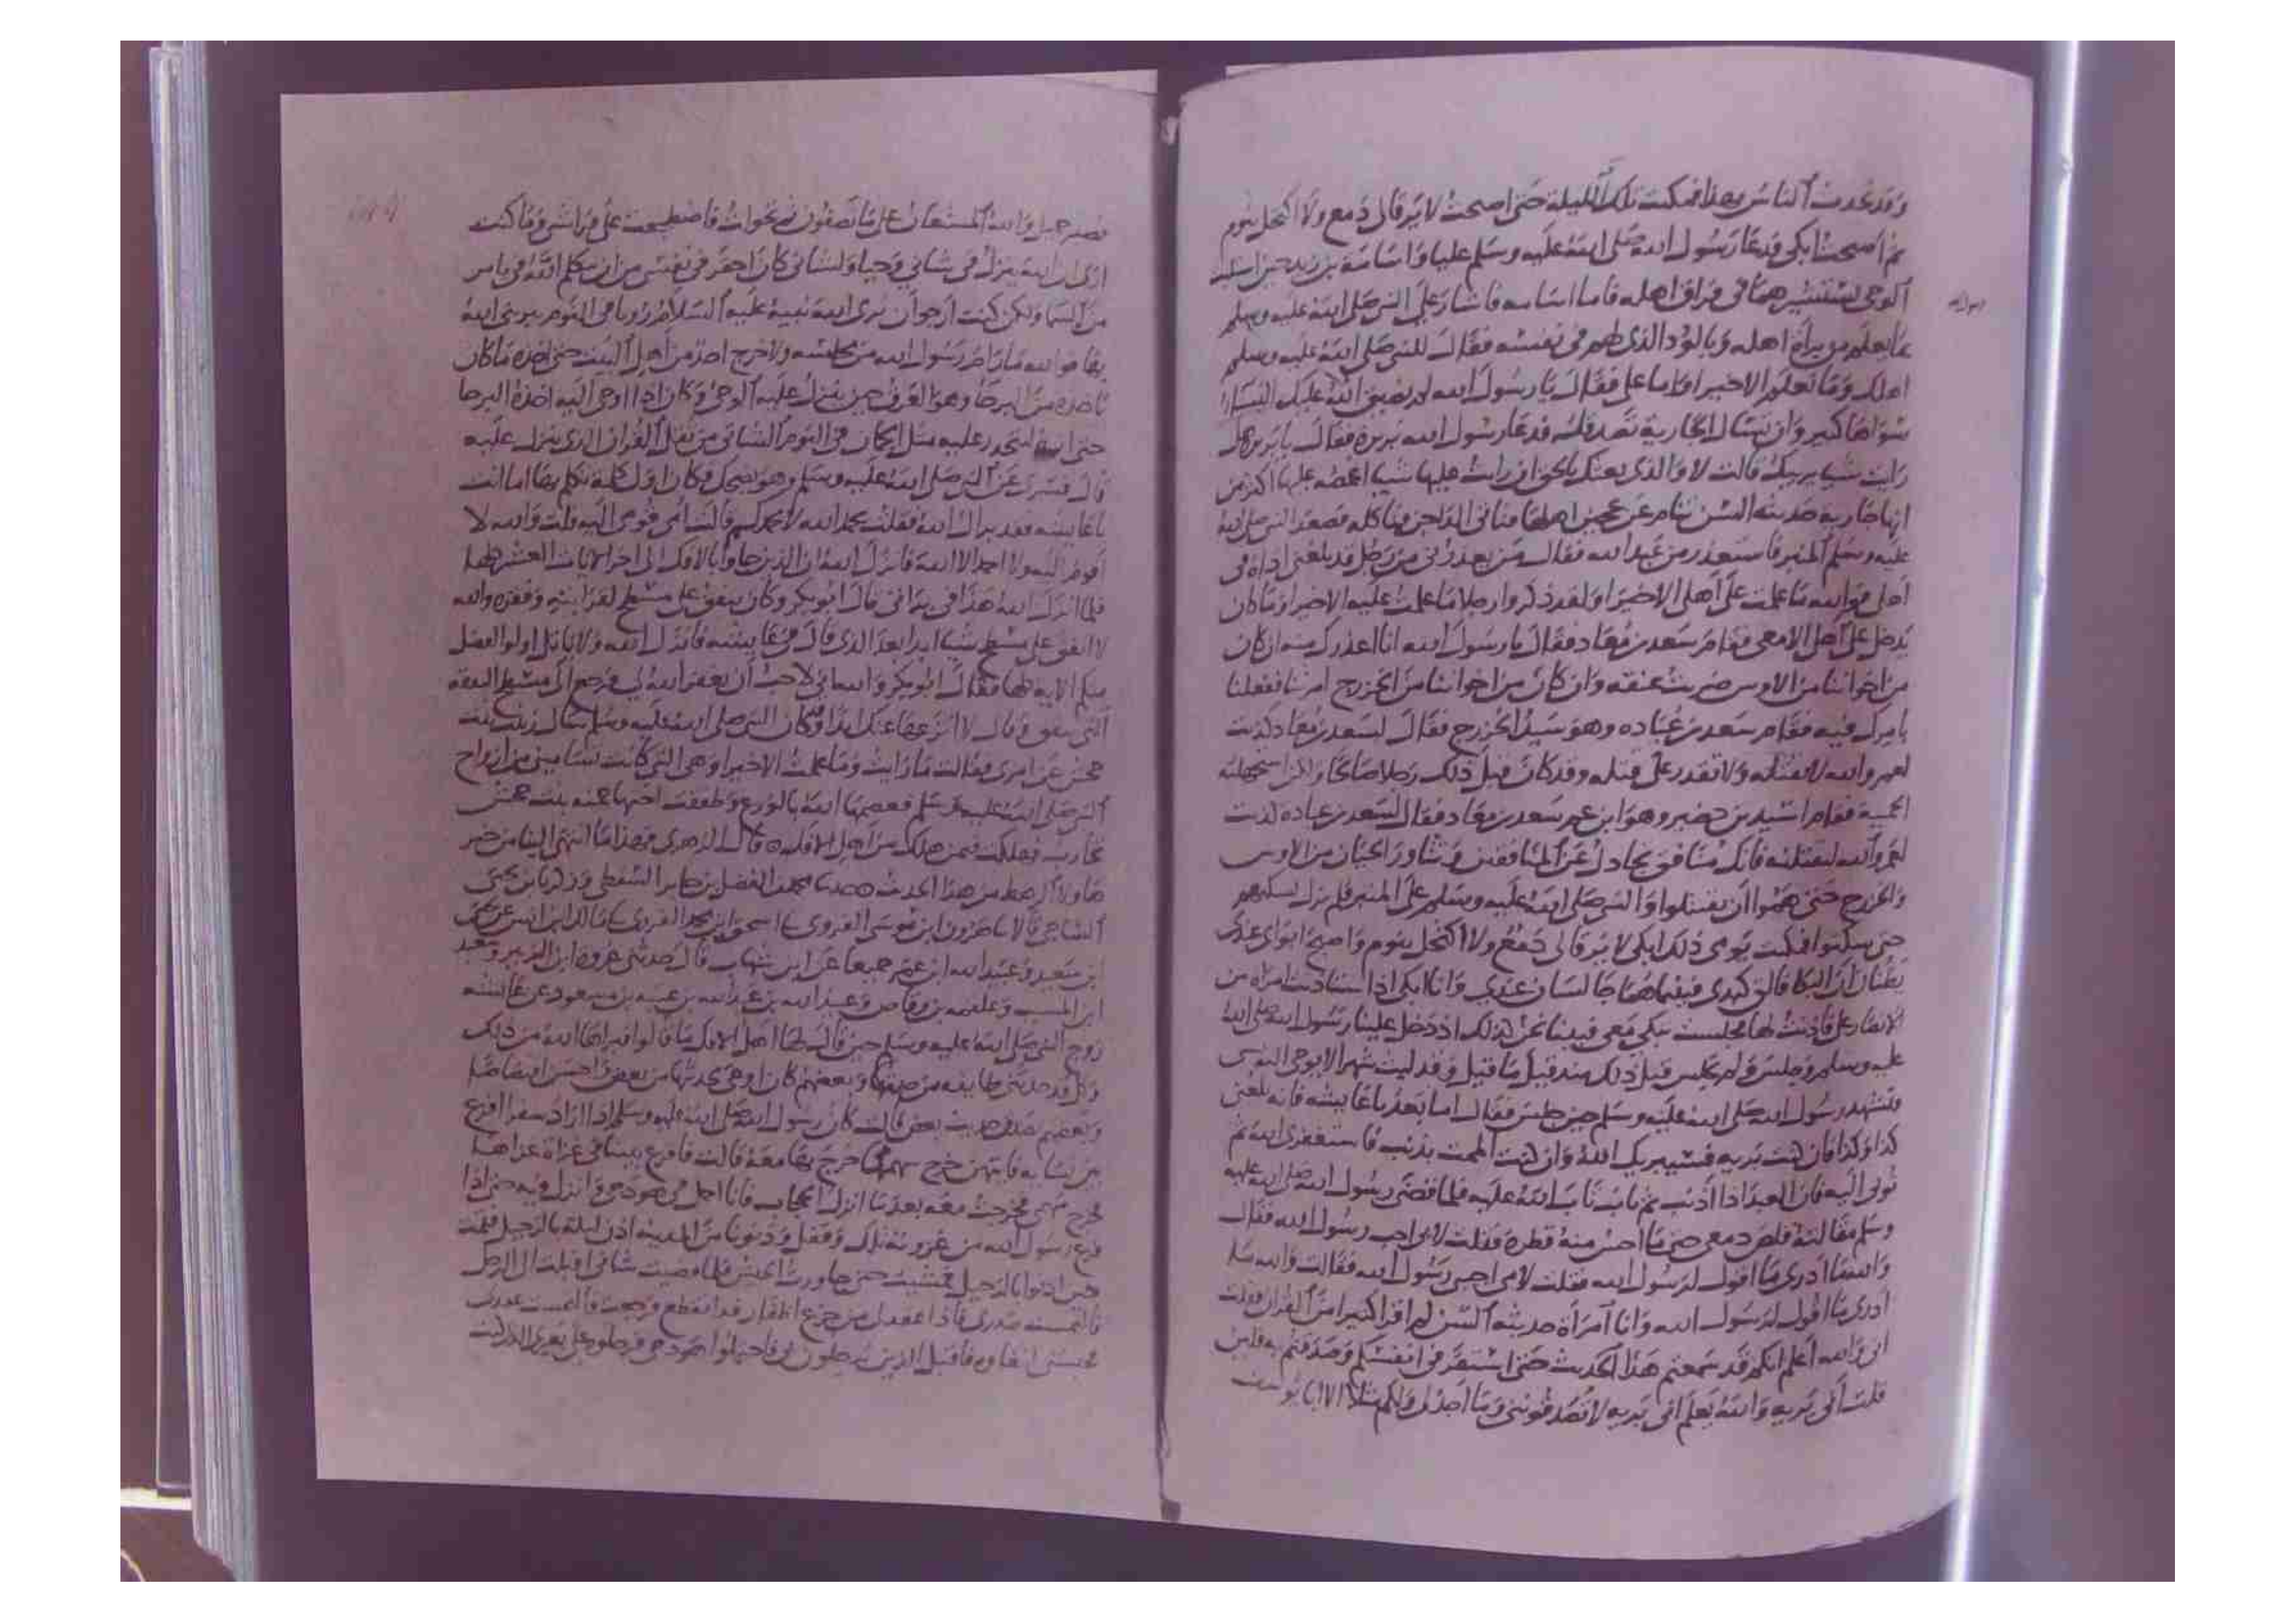 وقد تحدث الناس بهذا فمكثت تلك الليلة حتى اصبحت لا يرقا لي دمع ولا اكتحل بنوم
ثم اصبحت ابكي فدعا رسول الله صلى الله عليه وسلم عليا واسامة بن زيد حين استلبث
الوحي يستشيرهما في فراق اهله فاما اسامه فاشار على النبي صلى الله عليه وسلم
رسول الله
بما يعلم من براة اهله وبالود الذي لهم في نفسه فقال للنبي صلى الله عليه وسلم
اهلك وما نعلم الا خيرا واما علي فقال يا رسول الله لم يضيق الله عليك النساء
سواها كثير وان تسال الجارية تصدقك فدعا رسول الله بريرة فقال يا بريرة هل
رايت شيا يريبك قالت لا والذي بعثك بالحق ان رايت عليها شيا اغمصه عليها اكثر من
انها جارية حديثة السن تنام عن عجين اهلها فتاتي الداجن فتاكله فصعد النبي صلى الله
عليه وسلم المنبر فاستعذر من عبد الله فقال من يعذرني من رجل قد بلغني اذاه في
اهلي فوالله ما علمت على اهلي الا خيرا ولقد ذكروا رجلا ما علمت عليه الا خيرا وما كان
يدخل على اهلي الا معي فقام سعد بن معاد فقال يا رسول الله انا اعذرك منه ان كان
من اخواننا من الاوس ضربت عنقه وان كان من اخواننا من الخزرج امرتنا ففعلنا
بامرك فيه فقام سعد بن عباده وهو سيد الخزرج فقال لسعد بن معاد كذبت
لعمر والله لا تقتله ولا تقدر على قتله وقد كان قبل ذلك رجلا صالحا ولكن استجهلته
الحمية فقام اسيد بن حضير وهو ابن عم سعد بن معاد فقال لسعد بن عباده كذبت
لعمر والله لنقتلنه فانك منافق تجادل عن المنافقين وتثاور الحيان من الاوس
والخزرج حتى هموا ان يقتتلوا والنبي صلى الله عليه وسلم على المنبر فلم يزل يسكتهم
حتى سكتوا فمكثت يومي ذلك ابكي لا يرقا لي دمع ولا اكتحل بنوم واصبح ابواي عندي
يظنان ان البكا فالق كبدي فبينما هما جالسان عندي وانا ابكي اذ استاذنت امراه من
الانصار علي فاذنت لها فجلست تبكي معي فبينا نحن كذلك اذ دخل علينا رسول الله صلى الله
عليه وسلم وجلس ولم يجلس قبل ذلك منذ قيل ما قيل وقد لبث شهرا لا يوحى اليه
فتشهد رسول الله صلى الله عليه وسلم حين جلس فقال اما بعد يا عايشه فانه بلغني
كذا وكذا فان كنت بريه فسيبريك الله وان كنت الممت بذنب فاستغفري الله ثم
توبي اليه فان العبد اذا اذنب ثم تاب تاب الله عليه فلما قضى رسول الله صلى الله عليه
وسلم مقالته قلص دمعي حتى ما احس منه قطرة فقلت لابي اجب رسول الله فقال
والله ما ادري ما اقول لرسول الله فقلت لامي اجيبي رسول الله فقالت والله ما
ادري ما اقول لرسول الله وانا امرأة حديثه السن لم اقرا كثيرا من القران فقلت
اني والله اعلم انكم قد سمعتم هذا الحديث حتى استقر في انفسكم وصدقتم به فلين
قلت اني بريه والله يعلم اني بريه لا تصدقونني وما اجد لي ولكم مثلا الا ابا يوسف
فصبر جميل والله المستعان على ما تصفون ثم تحولت فاضطجعت على فراشي وما كنت
ارى ان الله ينزل في شاني وحيا ولشاني كان احقر في نفسي من ان يتكلم الله في بامر
من السما ولكن كنت ارجو ان يرى الله نبيه عليه السلام رويا في النوم يبريني الله
بها فوالله ما رام رسول الله من مجلسه ولا خرج احد من اهل البيت حتى اخذه ما كان
ياخذه من البرحا وهو العرق حين ينزل عليه الوحي وكان اذا اوحي اليه اخذه البرحا
حتى انه ليتحدر عليه مثل الجمان في اليوم الشاتي من ثقل القران الذي ينزل عليه
قال فسري عن النبي صلى الله عليه وسلم وهو يضحك وكان اول كلمة تكلم بها اما انت
يا عايشه فقد براك الله فقلت بحمد الله لا بحمدكم قالت امي قومي اليه قلت والله لا
اقوم اليه ولا احمد الا الله فانزل الله ان الذين جاوا بالافك الى اخر الايات العشر كلها
فلما انزل الله هذا في براتي قال ابو بكر وكان ينفق على مسطح لقرابته وفقره والله
لا انفق على مسطح شيا ابدا بعد الذي قال في عايشه فانزل الله ولا ياتل اولوا الفضل
منكم الايه كلها فقال ابو بكر والله اني لاحب ان يغفر الله لي فرجع الى مسطح النفقه
التي ينفق وقال لا انزعها عنك ابدا وكان النبي صلى الله عليه وسلم سال زينب بنت
جحش عن امري فقالت ما رايت وما علمت الا خيرا وهي التي كانت تساميني من ازواج
النبي صلى الله عليه وسلم فعصمها الله بالورع وطفقت اختها حمنه بنت جحش
تحارب فهلكت فيمن هلك من اهل الافك قال الزهري فهذا ما انتهى الينا من خبر
هاولا الرهط من هذا الحديث حدثنا محمد الفضل بن جابر السقطي وزكريا بن يحيى
الساجي قالا نا هرون ابن موسى الفروي نا اسحق ابن محمد الفروي نا مالك ابن انس عن يحيى
ابن سعيد وعبيد الله ابن عمر جميعا عن ابن شهاب قال حدثني عروه ابن الزبير وسعيد
ابن المسيب وعلقمه بن وقاص وعبيد الله بن عبد الله بن عتبه بن مسعود عن عائشه
زوج النبي صلى الله عليه وسلم حين قال لها اهل الافك ما قالوا فبراها الله من ذلك
وكل قد حدثني طايفه من حديثها وبعضهم كان اوعى لحديثها من بعض واحسن اقتصاصا
وبعضهم يصدق حديث بعض قالت كان رسول الله صلى الله عليه وسلم اذا اراد سفرا اقرع
بين نسايه فايتهن خرج سهمها خرج بها معه قالت فاقرع بيننا في غزاة غزاها
فخرج سهمي فخرجت معه بعد ما انزل الحجاب فانا احمل في هودجي وانزل فيه حتى اذا
فرغ رسول الله من غزوته تلك وقفل ودنونا من المدينه اذن ليلة بالرحيل فقمت
حين اذنوا بالرحيل فمشيت حتى جاوزت الجيش فلما قضيت شاني اقبلت الى الرحل
فالتمست صدري فاذا عقد لي من جزع اظفار قد انقطع فرجعت فالتمست عقدي
فحبسني ابتغاوه فاقبل الذين يرحلون لي فاحتملوا هودجي فرحلوه على بعيري الذي كنت